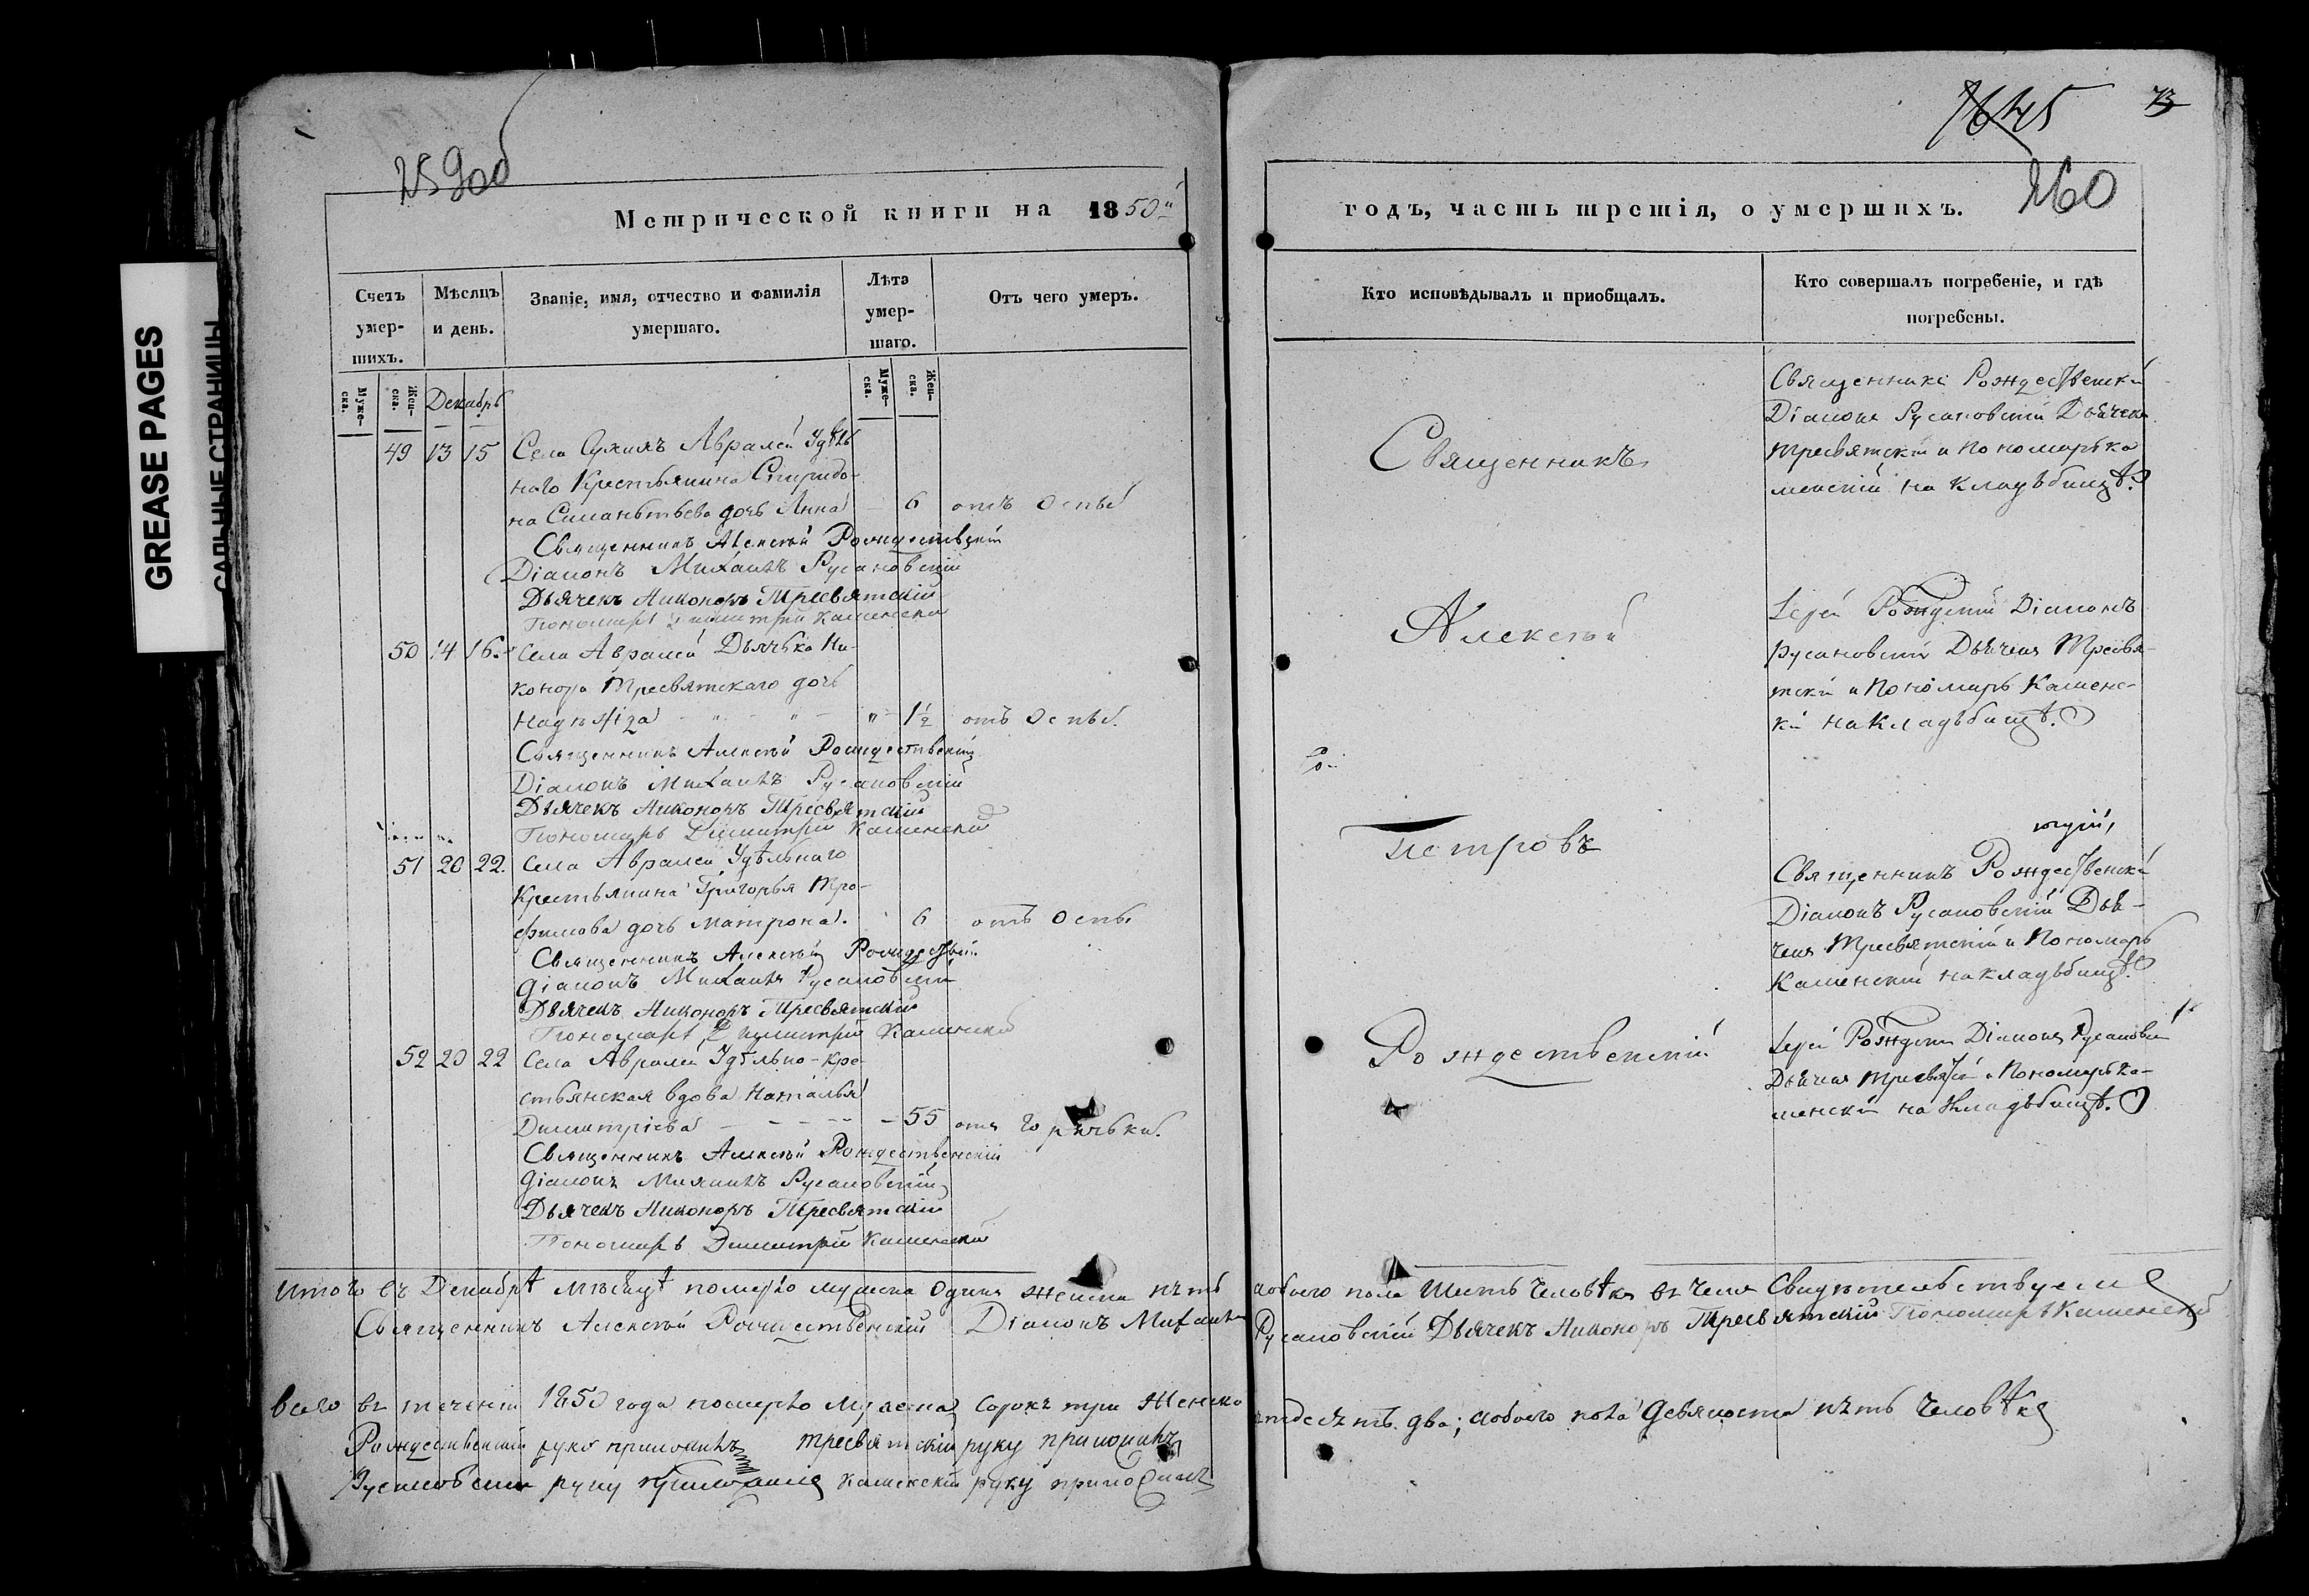 GREASE PAGES
САЛЬНЫЕ СТРАНИЦЫ
259 об
Метрической книги на 1850й
Счетъ умер-
шихъ.
Мѣсяцъ
и день.
Званіе, имя, отчество и фамилія
умершаго.
Лѣта
умер-
шаго.
Отъ чего умеръ.
Муже-
ска.
Жен-
ска.
Декабрь
Муже-
ска.
Жен-
ска.
49 13 15 Села Аврамей Удѣль
наго Крестьянина Спиридо-
на дочь Анна 6 отъ Оспы
Священникъ Алексѣй Рождественскій
Діаконъ Михаилъ Русановскій
Дьячекъ Никоноръ Тресвятскій
Пономарь Димитрій Каменскій
50 14 16. Села Аврамей Дьячька Ни-
конора Тресвятскаго дочь
Надѣжда " " " 1½ отъ Оспы.
Священникъ Алексѣй Рождественскій
Діаконъ Михаилъ Русановскій
Дьячекъ Никоноръ Тресвятскій
Пономарь Димитрій Каменскій
51 20 22. Села Аврамей Удѣльнаго
Крестьянина Григорья Тро-
фимова дочь Матрона. 6 отъ Оспы
Священникъ Алексѣй
Діаконъ Михаилъ Русановскій
Дьячекъ Никоноръ Тресвятскій
Пономарь Димитрій Каменскій
52 20 22 Села Аврамей Удѣльно-кре-
стьянская вдова Наталья
Димитріева - - - - - 55 отъ Горячьки.
Священникъ Алексѣй Рождественскій
Діаконъ Михаилъ Русановскій
Дьячекъ Никоноръ Тресвятскій
Пономарь Димитрій Каменскій
Итого въ Декабрѣ мѣсяцѣ померло мужеска одинъ женска пять
Священникъ Алексѣй Рождественскій Діаконъ Михаилъ
Всего въ теченіи 1850 года померло Мужеска сорокъ три Женска
Рождественскій руку приложилъ Тресвятскій руку приложилъ
Русановскій руку приложилъ Каменскій руку приложилъ
45 73
260
годъ, часть третія, о умершихъ.
Кто исповѣдывалъ и приобщалъ.
Кто совершалъ погребеніе, и гдѣ
погребены.
Священникъ
Алексѣй
Петровъ
Рождественскій
Священникъ Рождественскій
Діаконъ Русановскій Дьячекъ
Тресвятскій и Пономарь Ка
менскій на Кладьбищѣ.
Іерей Діаконъ
Русановскій Дьячекъ Тресвя-
тскій и Пономарь Каменс-
кій на Кладьбищѣ.
Священникъ Рождественскій
Діаконъ Русановскій Дья-
чекъ Тресвятскій и Пономарь
Каменскій на кладьбищѣ.
Іерей Діаконъ Русановскій
Дьячекъ и Пономарь Ка-
менскій на Кладьбищѣ.
обоего пола Шесть Человѣкъ въ чемъ Свидѣтельствуемъ
Русановскій Дьячекъ Никоноръ Тресвятскій Пономарь Каменскій
пятдесятъ два; обоего пола девяноста пять Человѣкъ